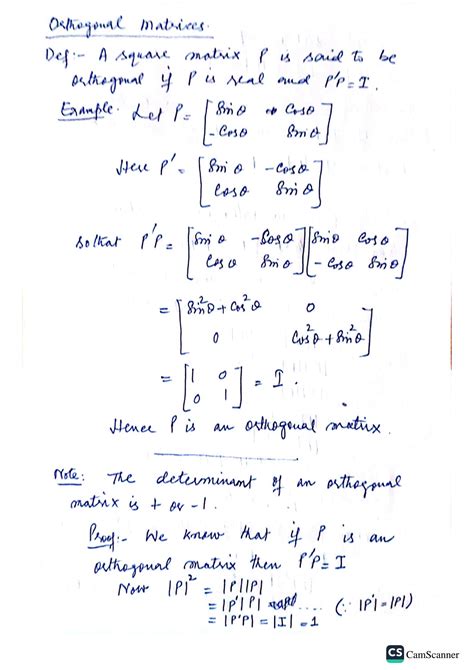 Orthogonal Matrices.
Def:- A square matrix P is said to be
orthogonal if P is real and P'P=I.
Example. Let P = [Sinθ Cosθ
-Cosθ Sinθ]
Here P' = [Sinθ -Cosθ
Cosθ Sinθ]
so that P'P = [Sinθ -Cosθ] [Sinθ Cosθ]
[Cosθ Sinθ] [-Cosθ Sinθ]
= [Sin²θ+Cos²θ 0
0 Cos²θ+Sin²θ]
= [1 0
0 1] = I.
Hence P is an orthogonal matrix.
Note: The determinant of an orthogonal
matrix is + or -1.
Proof:- We know that if P is an
orthogonal matrix then P'P=I
Now |P|² = |P||P|
= |P'||P| ..... (∵ |P'|=|P|)
= |P'P| = |I| = 1
CS CamScanner